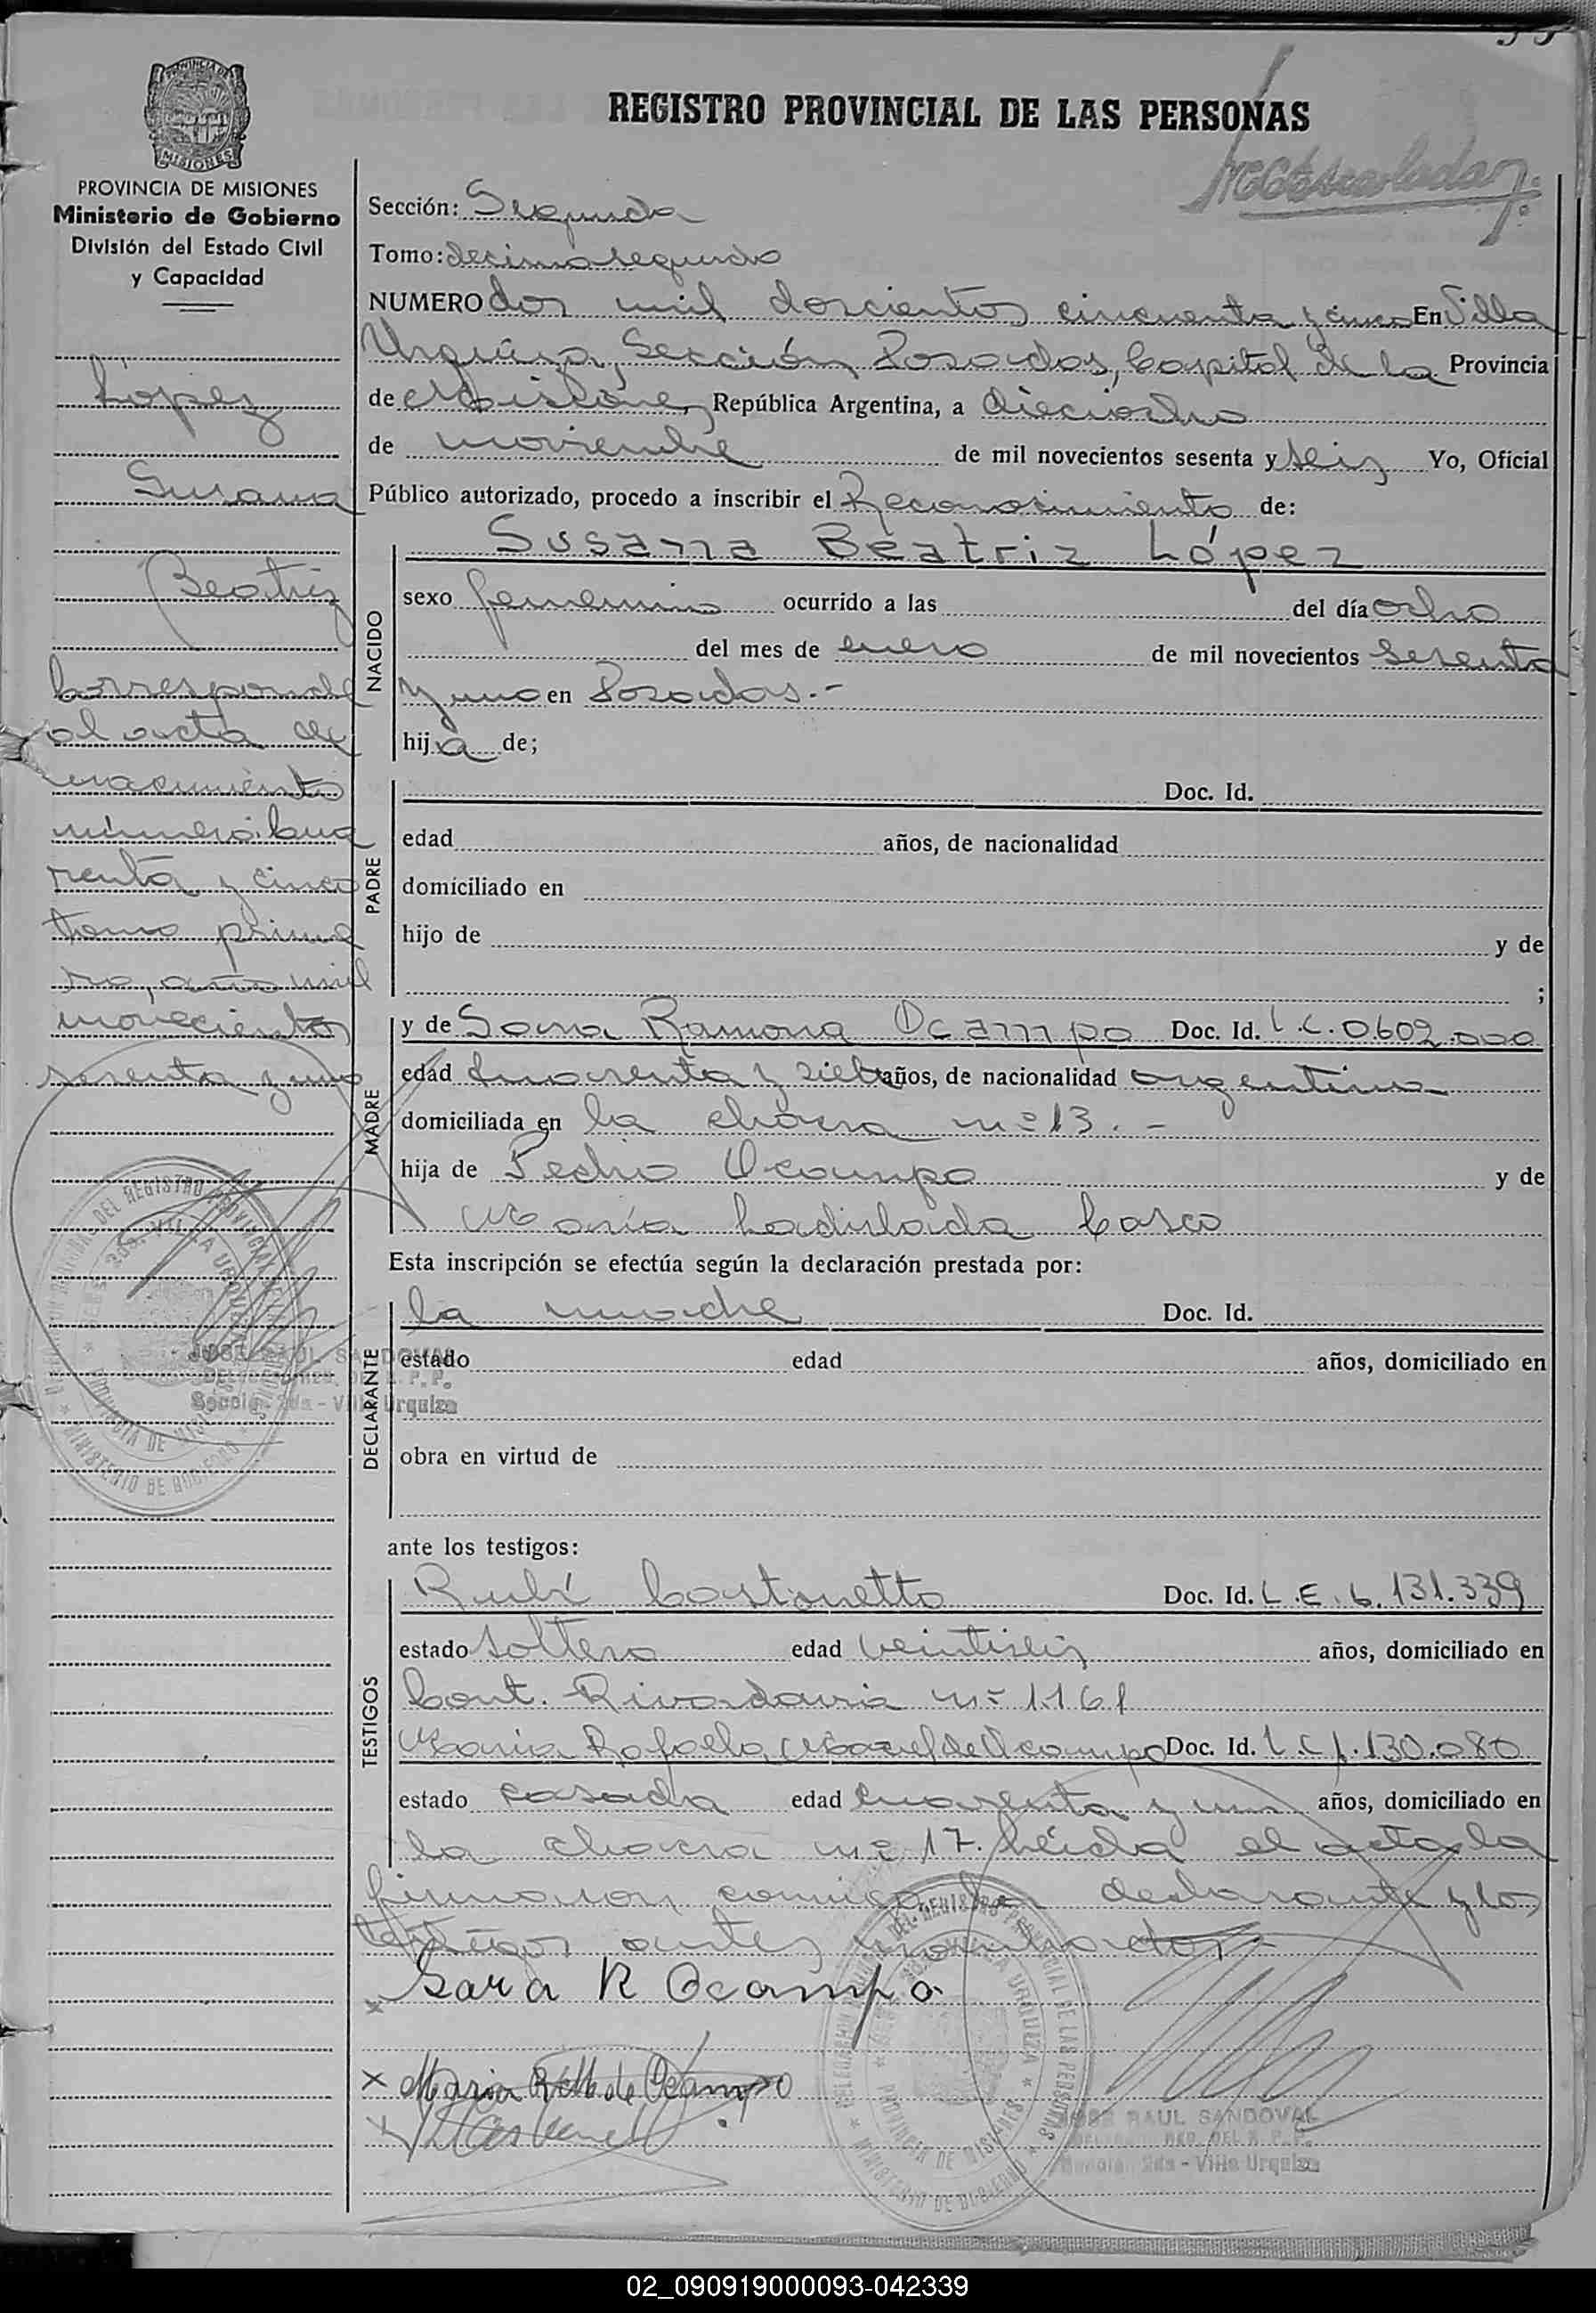 REGISTRO PROVINCIAL DE LAS PERSONAS
MISIONES
PROVINCIA DE MISIONES
Ministerio de Gobierno
División del Estado Civil
y Capacidad
López
Susana
Beatriz
Corresponde
al acta de
nacimiento
número: Cua
renta y cinco
tomo prime
ro, año mil
novecientos
sesenta y uno
Sección: Segunda
Tomo: decimo segundo
NUMERO dos mil doscientos cincuenta y cinco En Villa
Urquiza, Sección Posadas, Capital de la Provincia
de Misiones República Argentina, a dieciocho
de noviembre de mil novecientos sesenta y seis Yo, Oficial
Público autorizado, procedo a inscribir el Reconosimiento de:
NACIDO
Susana Beatriz López
sexo femenino ocurrido a las del día ocho
del mes de enero de mil novecientos sesenta
y uno en Posadas.-
hija de;
PADRE
Doc. Id.
edad años, de nacionalidad
domiciliado en
hijo de y de
;
MADRE
y de Sara Ramona Ocampo Doc. Id. L.C. 0.602.000
edad Cuarenta y siete años, de nacionalidad argentina
domiciliada en la chacra nº 13.-
hija de Pedro Ocampo y de
María Ladislada Casco
Esta inscripción se efectúa según la declaración prestada por:
DECLARANTE
la madre Doc. Id.
estado edad años, domiciliado en
obra en virtud de
ante los testigos:
TESTIGOS
Rubí Castonetto Doc. Id. L.E. 6.131.339
estado soltero edad veintiseis años, domiciliado en
Cont. Rivadavia nº 1161
María Rafaela de Ocampo Doc. Id. L.C. 1.130.080
estado casada edad cuarenta y un años, domiciliado en
la chacra nº 17. Leída el acta la
firmaron conmigo la declarante y los
testigos antes nombrados.-
Sara R Ocampo
x Maria R M de Ocampo
JOSE RAUL SANDOVAL
Sección 2da - Villa Urquiza
JOSE RAUL SANDOVAL
Sección 2da - Villa Urquiza
02_090919000093-042339